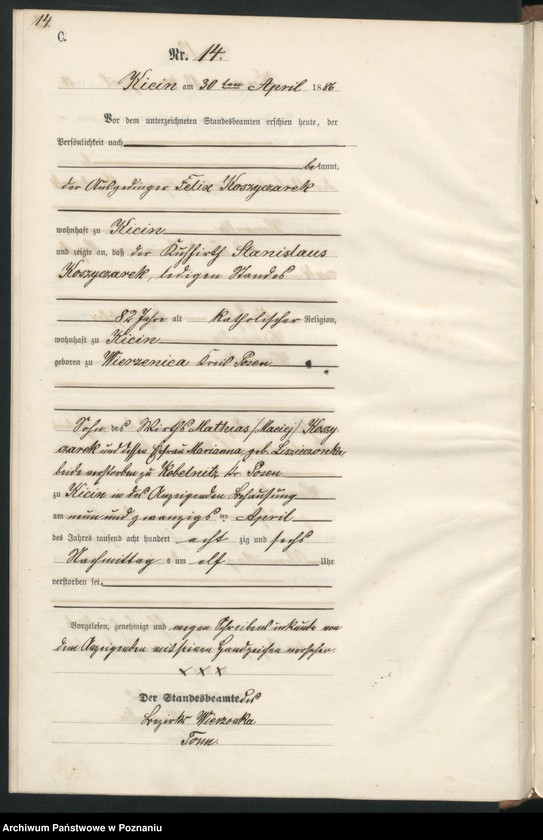 14.
C.
Nr. 14.
Kicin am 30 ten April 1886
Vor dem unterzeichneten Standesbeamten erschien heute, der
Persönlichkeit nach
bekannt,
der Ausgedinger Felix Koszyczarek
wohnhaft zu Kicin
und zeigte an, daß der Kuhhirth Stanislaus
Koszyczarek, ledigen Standes
82 Jahre alt katholischer Religion,
wohnhaft zu Kicin
geboren zu Wierzenica Kreis Posen
Sohn des Wirths Mathias /Maciej/ Koszy-
czarek und dessen Ehefrau Marianna, geb.
beide verstorben zu Kobelnitz Kr. Posen
zu Kicin in des Anzeigenden Behausung
am neun und zwanzigs ten April
des Jahres tausend acht hundert acht zig und sechs
Nachmittag s um elf Uhr
verstorben sei.
Vorgelesen, genehmigt und wegen Schreibensunkunde von
dem Anzeigenden mit seinen Handzeichen versehen.
XXX
Der Standesbeamte des
Bezirks Wierzonka
Tonn.
Archiwum Państwowe w Poznaniu